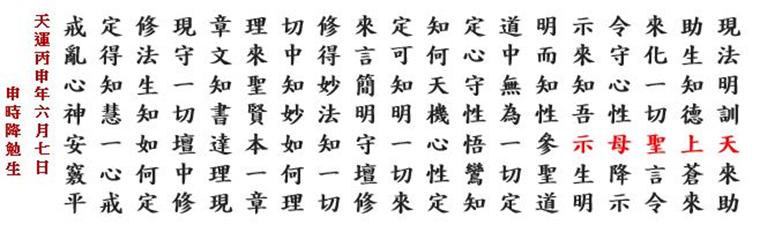 現法明訓天來助
助生知德上蒼來
來化一切聖言令
令守心性母降示
示來知吾示生明
明而知性參聖道
道中無為一切定
定心守性悟鸞知
知何天機心性定
定可知明一切來
來言簡明守壇修
修得妙法知一切
切中知妙如何理
理來聖賢本一章
章文知書達理現
現守一切壇中修
修法生知如何定
定得知慧一心戒
戒亂心神安竅平
天運丙申年六月七日
申時降勉生